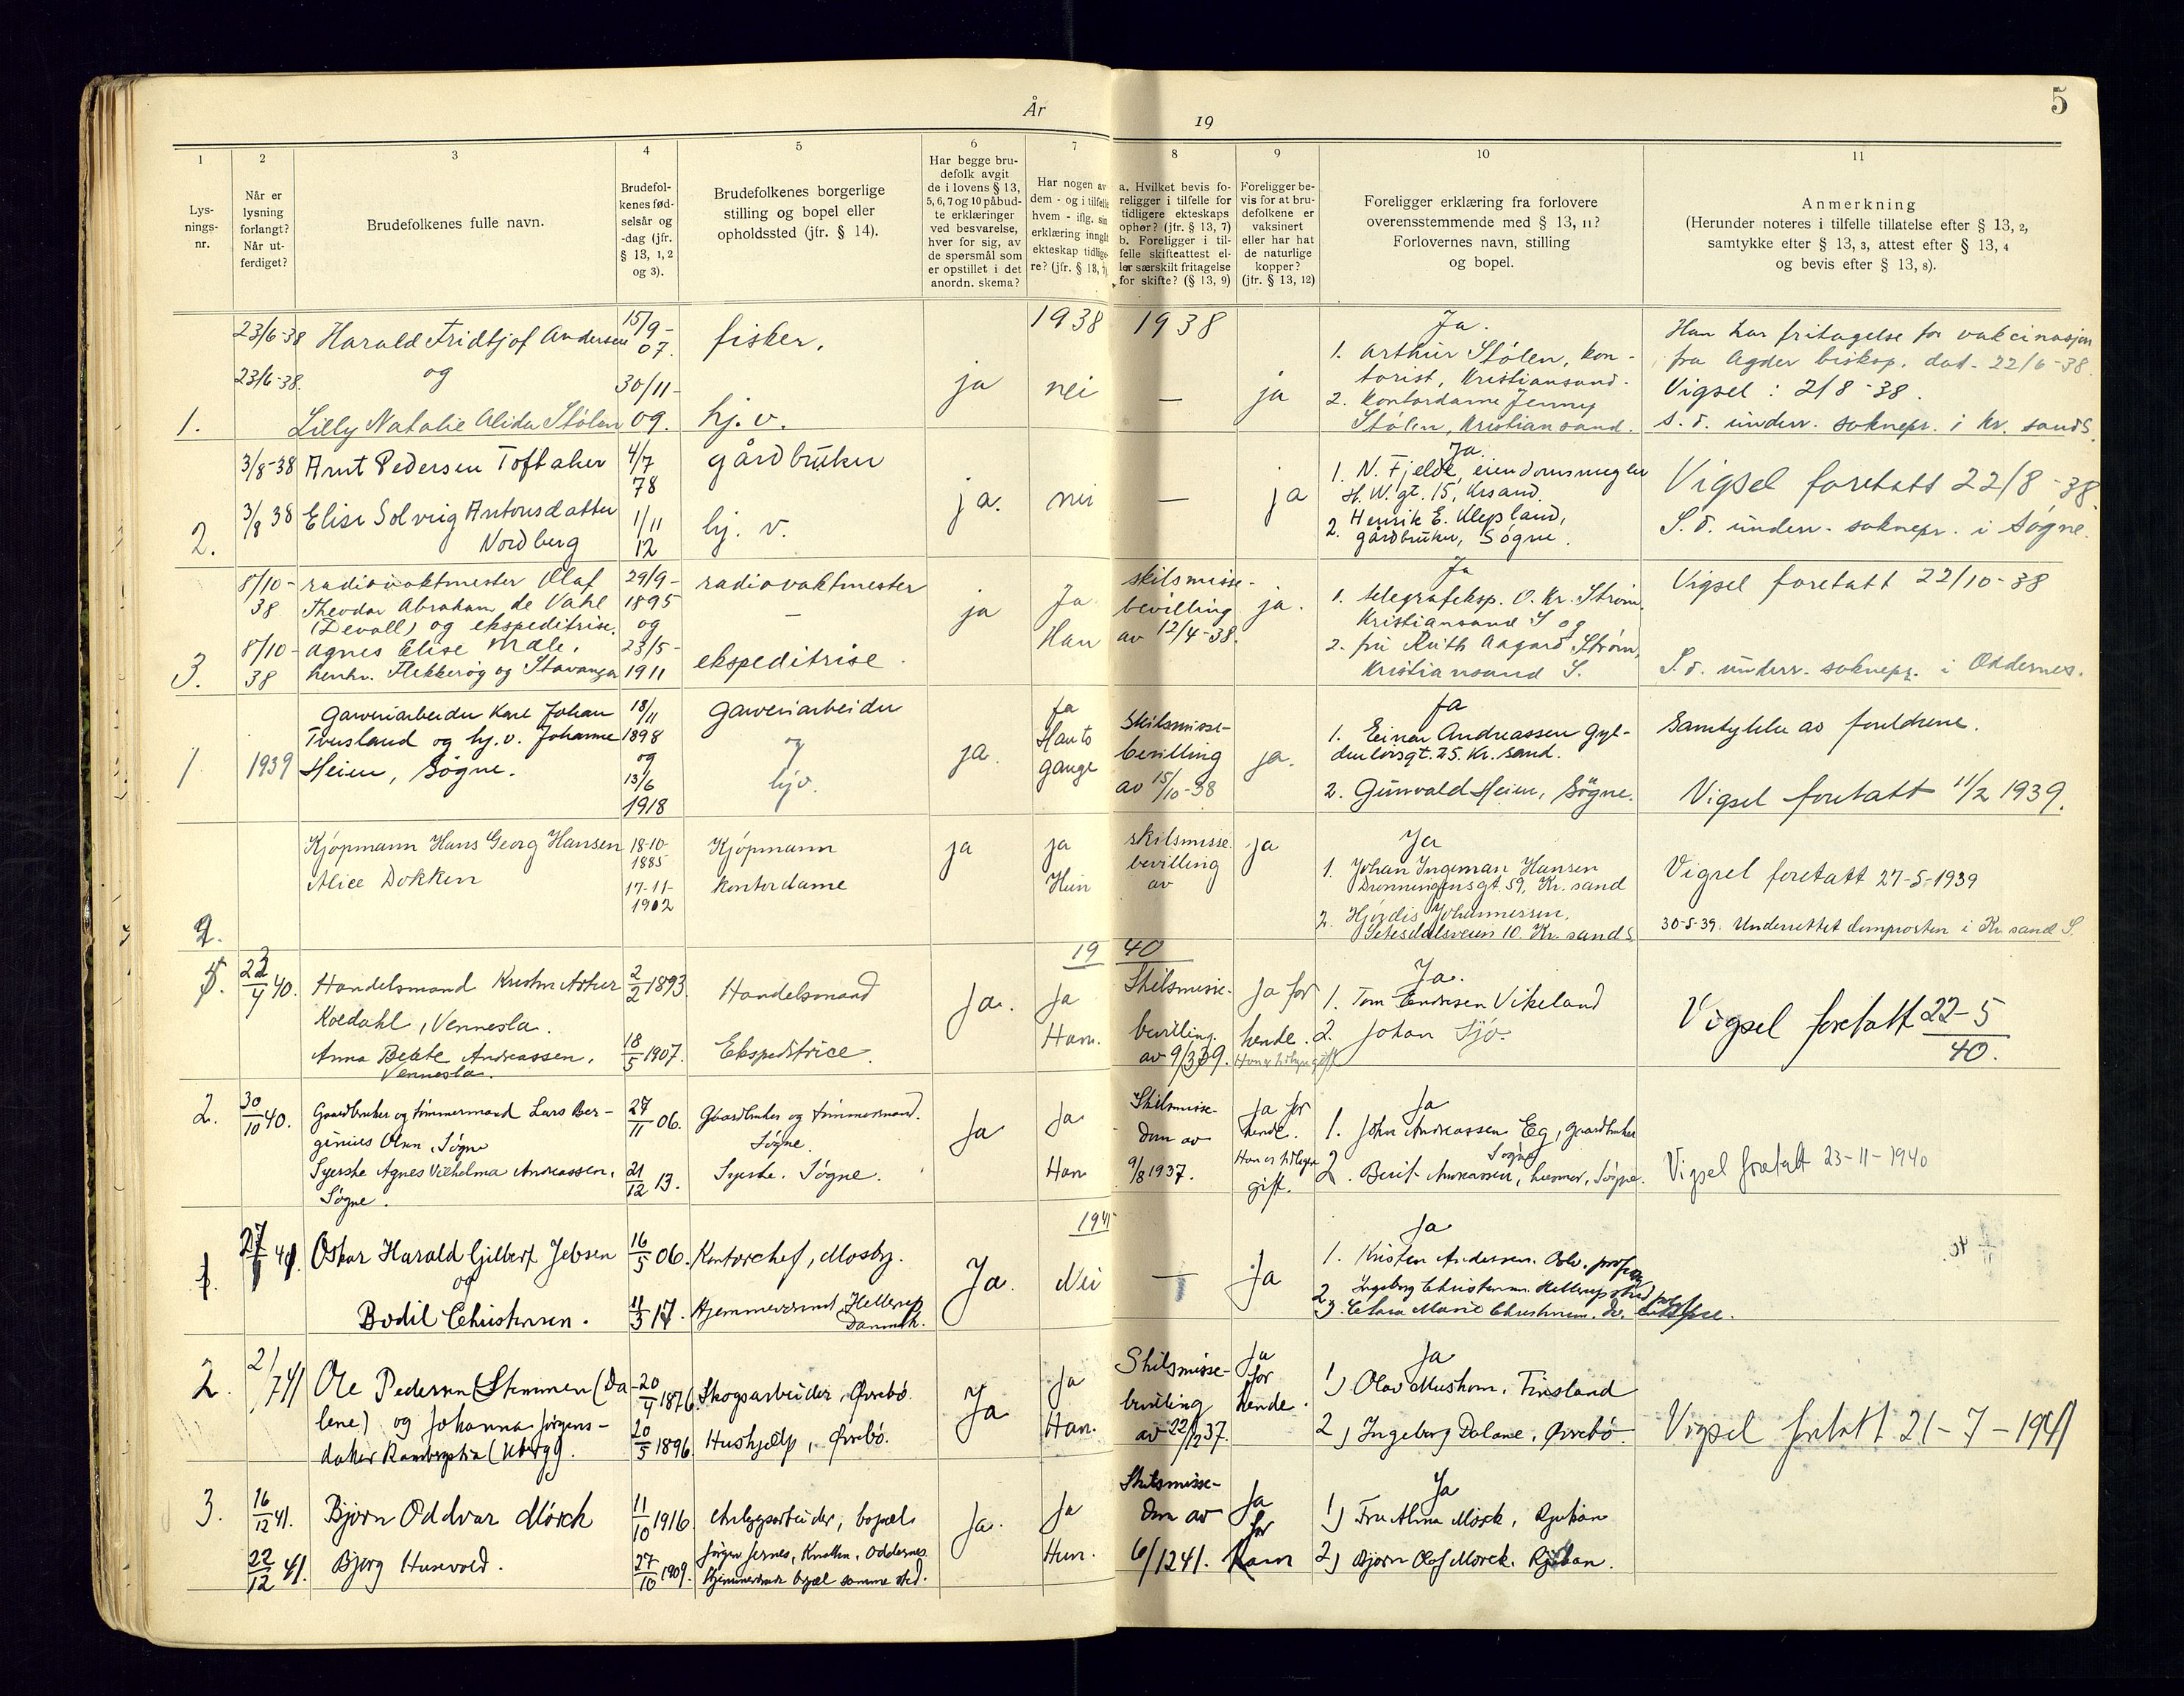 5
År 19
1
Lys-
nings-
nr.
2
Når er
lysning
forlangt?
Når ut-
ferdiget?
3
Brudefolkenes fulle navn.
4
Brudefol-
kenes fød-
selsår og
-dag (jfr.
§ 13, 1, 2
og 3).
5
Brudefolkenes borgerlige
stilling og bopel eller
opholdssted (jfr. § 14).
6
Har begge bru-
defolk avgit
de i lovens § 13,
5, 6, 7 og 10 påbud-
te erklæringer
ved besvarelse,
hver for sig, av
de spørsmål som
er opstillet i det
anordn. skema?
7
Har nogen av
dem - og i tilfelle
hvem - iflg. sin
erklæring inngåt
ekteskap tidlige-
re? (jfr. § 13, 7)
8
a. Hvilket bevis fo-
religger i tilfelle for
tidligere ekteskaps
ophør? (jfr. § 13, 7)
b. Foreligger i til-
felle skifteattest el-
ler særskilt fritagelse
for skifte? (§ 13, 9)
9
Foreligger be-
vis for at bru-
defolkene er
vaksinert
eller har hat
de naturlige
kopper?
(jfr. § 13, 12)
10
Foreligger erklæring fra forlovere
overensstemmende med § 13, 11?
Forlovernes navn, stilling
og bopel.
11
Anmerkning
(Herunder noteres i tilfelle tillatelse efter § 13, 2,
samtykke efter § 13, 3, attest efter § 13, 4
og bevis efter § 13, 8).
1938 1938
1.
23/6-38
23/6-38.
Harald Fridtjof Andersen
og
Lilly Natalie Alida Stølen
15/9-
07.
30/11-
09.
fisker.
hj. v.
ja
nei
—
ja
Ja.
1. Arthur Stølen, kon-
torist, Kristiansand.
2. Kontordame Jenny
Stølen, Kristiansand.
Han har fritagelse for vakcinasjon
fra Agder biskop. dat. 22/6-38.
Vigsel: 2/8-38.
S. d. underr. soknepr. i Kr. sand S.
2.
3/8-38
3/8 38
Arnt Pedersen Toftaker
Elise Solveig Antonsdatter
Nordberg
4/7
78
1/11
12
gårdbruker
hj. v.
ja.
nei
—
ja
Ja.
1. N. Fjelde, eiendomsmegler
H. W. gt. 15, Krsand.
2. Henrik E. Klepland,
gårdbruker, Søgne.
Vigsel foretatt 22/8-38
S. d. underr. soknepr. i Søgne.
3.
8/10-
38
8/10-
38
radiovaktmester Olaf
Theodor Abraham de Vahl
(Devoll) og ekspeditrise
Agnes Elise Mæle,
henhv. Flekkerøy og Stavanger
29/9-
1895
og
23/5-
1911
radiovaktmester
—
ekspeditrise.
ja
Ja
Han
skilsmisse-
bevilling
av 12/4-38.
ja.
Ja
1. telegrafeksp. O. Kr. Strøm,
Kristiansand S og
2. fru Ruth Aagard Strøm,
Kristiansand S.
Vigsel foretatt 22/10-38
S. d. underr. soknepr. i Oddernes.
1
1939
Garveriarbeider Karl Johan
Tveisland og hj. v. Johanne
Heien, Søgne.
18/11
1898
og
13/6
1918
Garveriarbeider
og
hjv.
ja.
Ja
Han to
gange
Skilsmisse-
bevilling
av 15/10-38
ja.
Ja
1. Einar Andreassen Gyl-
denløvsgt. 25. Kr. sand.
2. Gunvald Heien, Søgne.
Samtykke av foreldrene.
Vigsel foretatt 11/2 1939.
2.
Kjøpmann Hans Georg Hansen
Alice Dokken
18-10-
1885
17-11-
1902
Kjøpmann
kontordame
ja
ja
Hun
skilsmisse
bevilling
av
ja
Ja
1. Johan Ingeman Hansen
Dronningensgt. 59, Kr. sand
2. Hjørdis Johannessen,
Setesdalsveien 10. Kr. sand S
Vigsel foretatt 27-5-1939
30-5-39. Underrettet domprosten i Kr. sand S.
19 40
1.
22/4 40.
Handelsmand Kristen Artur
Koedahl, Vennesla.
Anna Beate Andreassen,
Vennesla.
2/2 1893
18/5 1907.
Handelsmand
Ekspeditrice.
Ja.
Ja
Han.
Skilsmisse-
bevilling
av 9/3 39.
Ja for
hende.
Han er tidligere gift
Ja.
1. Tom Endresen Vikeland
2. Johan Sjø.
Vigsel foretatt 22-5
40.
2.
30/10 40.
Gaardbruker og tømmermand Lars Ber-
ginius Olsen, Søgne
Syerske Agnes Vilhelma Andreassen,
Søgne.
27/11 06.
21/12 13.
Gaardbruker og tømmermand.
Søgne.
Syerske. Søgne.
Ja
Ja
Han
Skilsmisse-
dom av
9/8 1937.
Ja for
hende.
Han er tidligere
gift.
Ja
1. John Andreassen Eg, gaardbruker
Søgne
2. Berit Andreassen, husmor, Søgne.
Vigsel foretatt 23-11-1940
1941
1.
27/1 41.
Oskar Harald Gilbert Jebsen
og
Bodil Christensen.
16/5 06.
11/3 17.
Kontorchef, Mosby.
Hjemmeværende Hellerup
Danmark.
Ja.
Nei
—
Ja
Ja
1. Kristen Andersen.
2. Ingeborg Christensen. Hellerup
3. Clara Marie Christensen. do.
2.
2/7 41
Ole Pedersen Stemmen (Da-
lene) og Johanna Jørgens-
datter
20/4 1876.
20/5 1896.
Skogsarbeider, Øvrebø.
Hushjælp, Øvrebø.
Ja
Ja
Han.
Skilsmisse-
bevilling
av 22/12 37.
Ja
for
hende.
Ja
1) Olav Mushom, Finsland
2) Ingeborg Dalane, Øvrebø.
Vigsel foretatt 21-7-1941
3.
16/12 41.
22/12 41.
Bjørn Oddvar Mørch
Bjørg Husevold.
11/10 1916
27/10 1909.
Anleggsarbeider, bopæl.
Jørgen Jernes, Oddernes.
Hjemmeværende bopæl samme sted.
Ja.
Ja
Hun.
Skilsmisse-
dom av
6/12 41.
Ja
for
ham
Ja
1) Fru Alma Mørck, Rjukan
2) Bjørn Olaf Mørck. Rjukan.